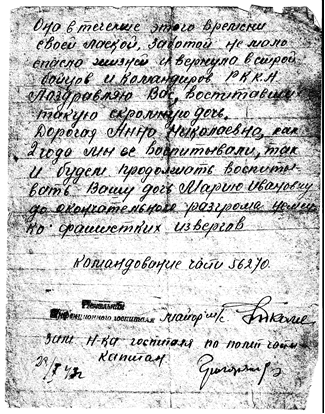 Она в течение этого времени
своей лаской, заботой не мало
спасла жизней и вернула в строй
бойцов и командиров РККА
Поздравляю Вас, воспитавши
такую скромную дочь.
Дорогая Анна Николаевна, как
2 года мы ее воспитывали, так
и будем продолжать воспиты-
вать Вашу дочь Марию Ивановну
до окончательного разгрома немец
ко-фашистких извергов
Командование части 56270.
Начальник
госпиталя майор м/с
Зам. н-ка госпиталя по полит части
Капитан